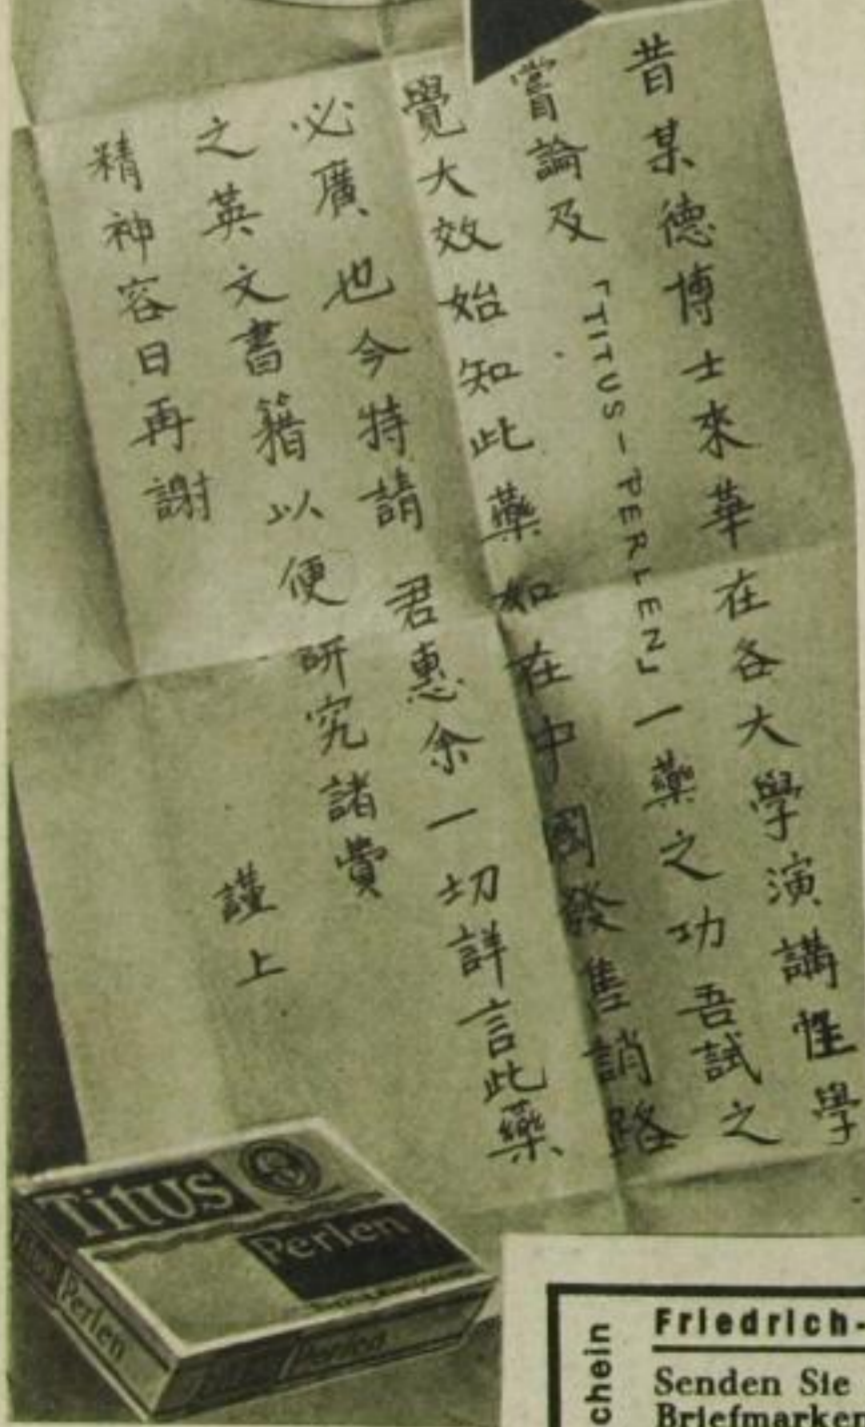 昔某德博士來華在各大學演講性學
嘗論及「TITUS-PERLEN」一藥之功吾試之
覺大效始知此藥如在中國發售銷路
必廣也今特請 君惠余一切詳言此藥
之英文書籍以便研究諸費
精神容日再謝
謹上
Titus
Perlen
Titus Perlen
Perlen
chein
Friedrich-
Senden Sie
Briefmarken